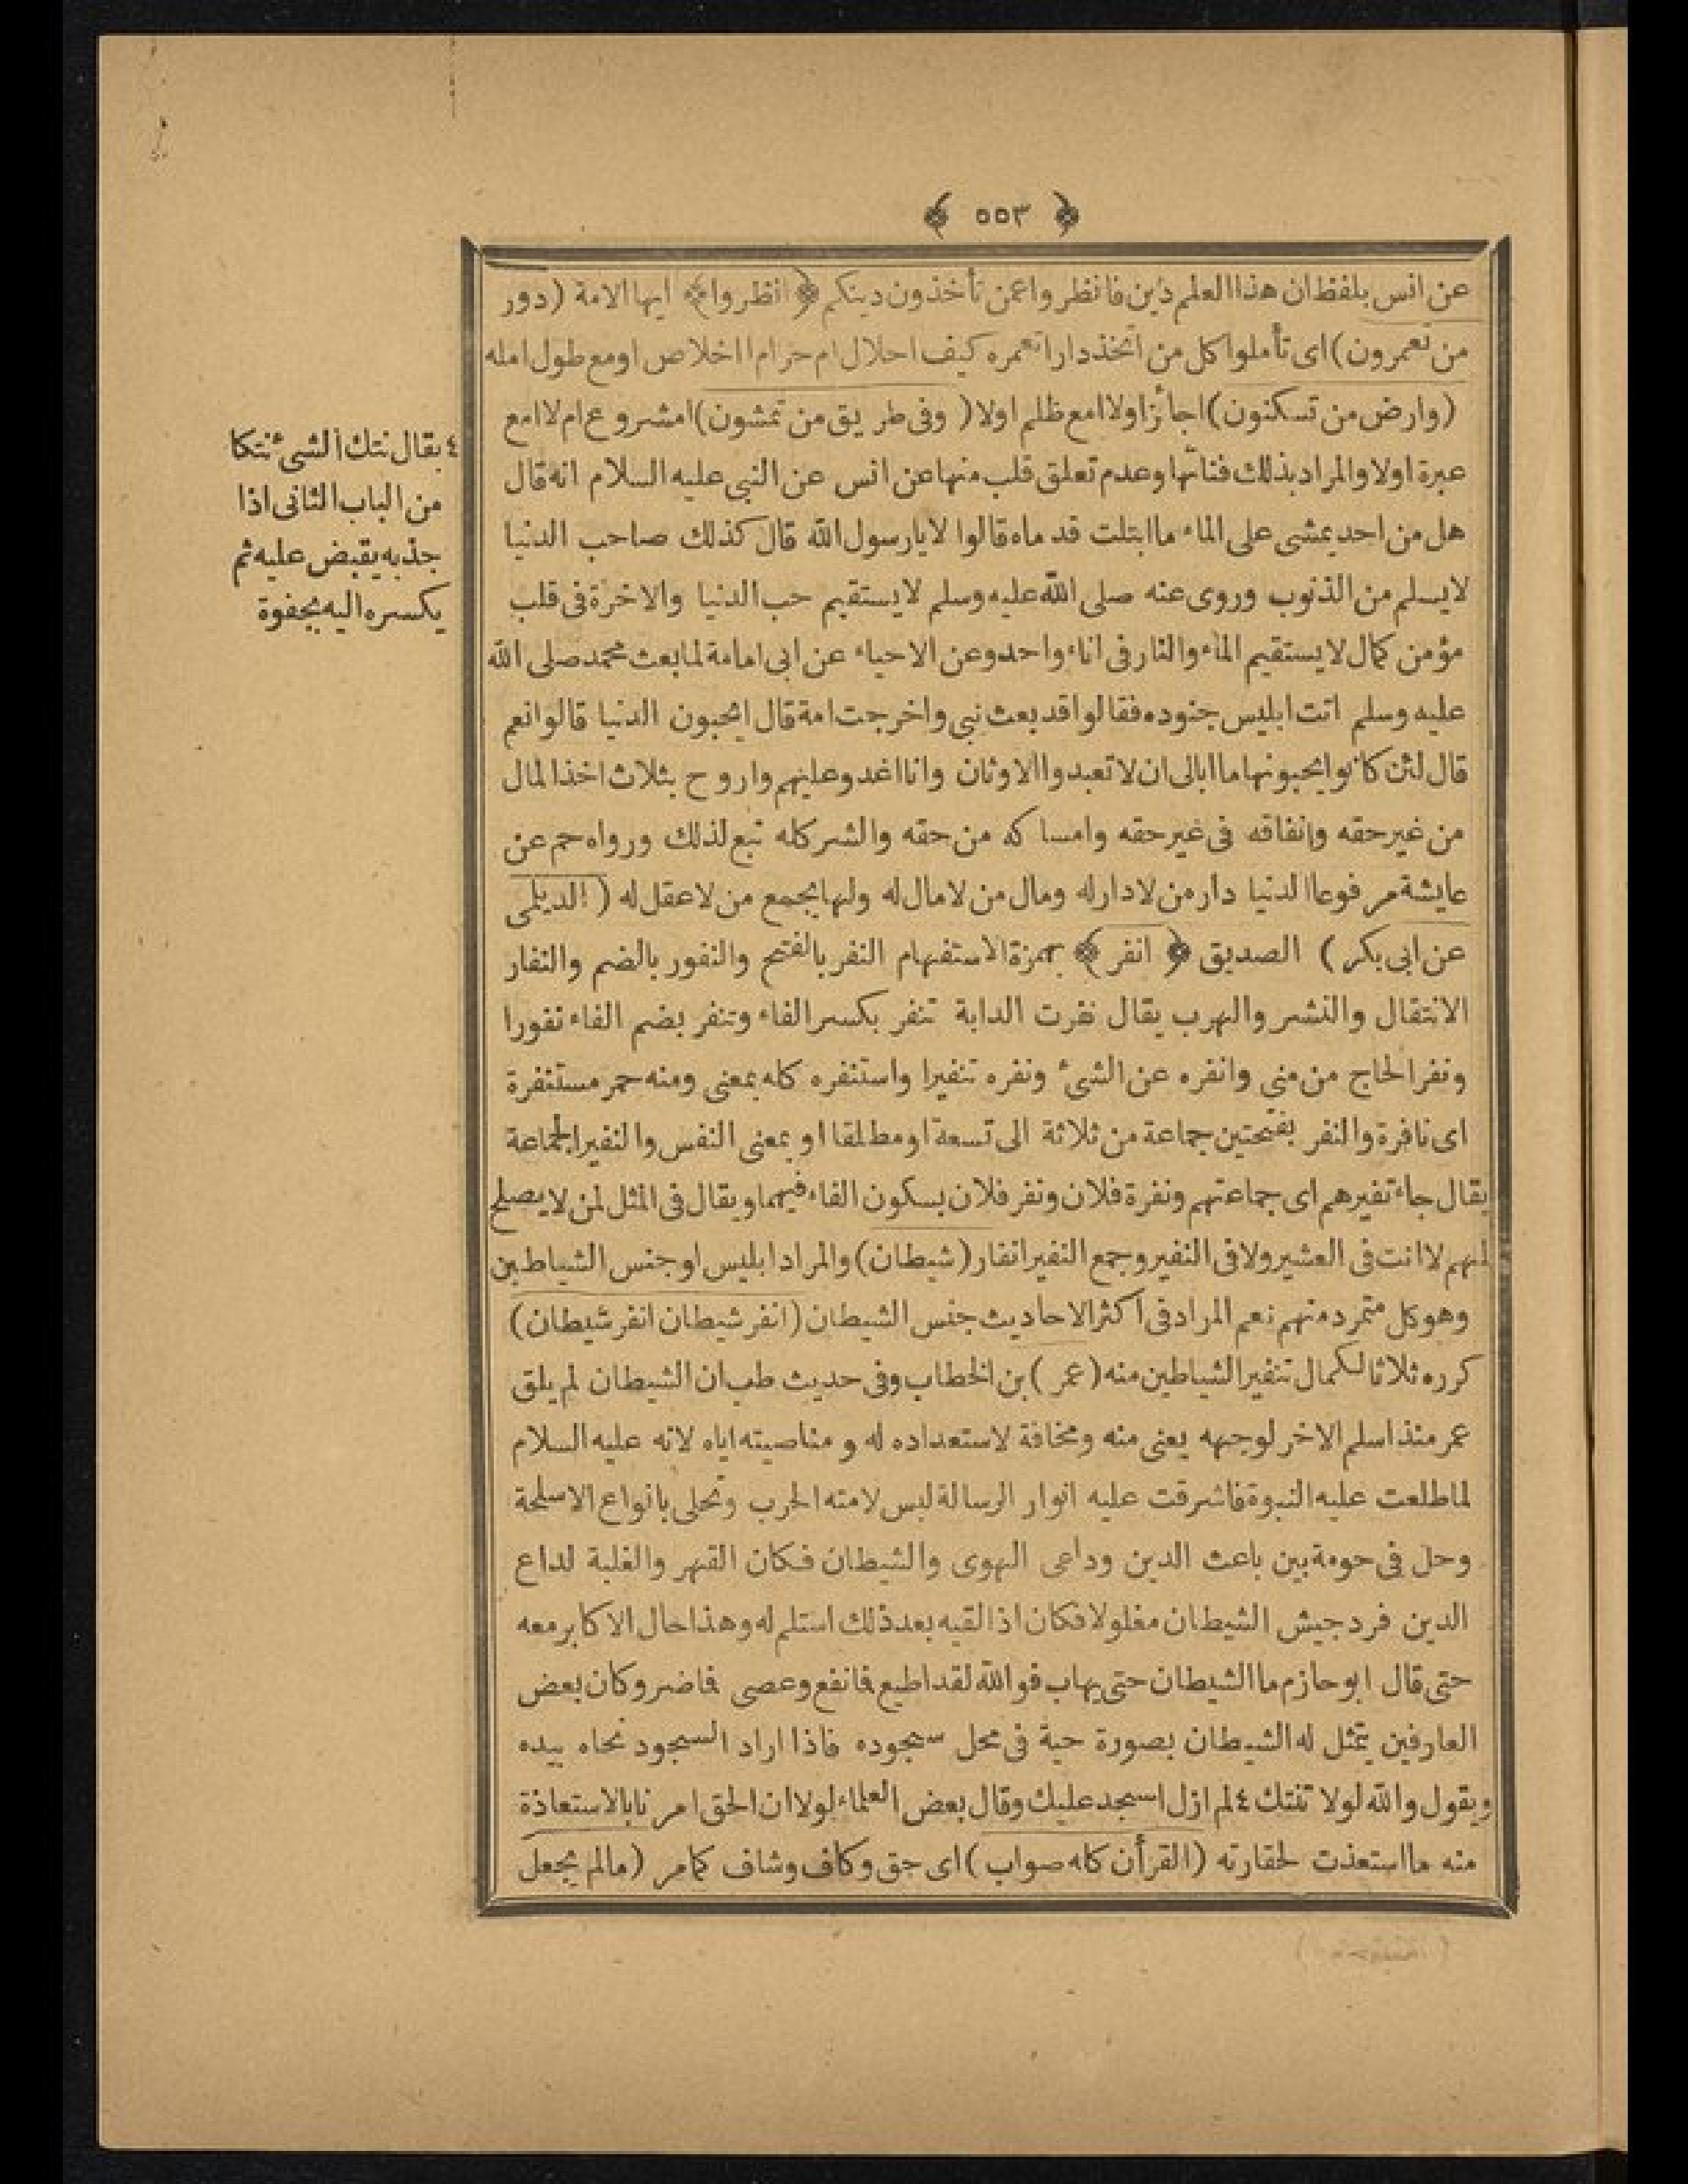 ﴿ ٥٥٣ ﴾
عن انس بلفظ ان هذا العلم دين فانظروا عمن تأخذون دينكم ﴿ انظروا ﴾ ايها الامة (دور
من تعمرون) اى تأملوا كل من اتخذ دارا تعمره كيف احلال ام حرام ااخلاص اومع طول امله
(وارض من تسكنون) اجائزا ولا امع ظلم اولا (وفى طريق من تمشون) امشروع ام لا امع
عبرة اولا والمراد بذلك فنائها وعدم تعلق قلب منها عن انس عن النبى عليه السلام انه قال
هل من احد يمشى على الماء ما ابتلت قدماه قالوا لا يارسول الله قال كذلك صاحب الدنيا
لايسلم من الذنوب وروى عنه صلى الله عليه وسلم لايستقيم حب الدنيا والاخرة فى قلب
مؤمن كمال لايستقيم الماء والنار فى اناء واحد وعن الاحياء عن ابى امامة لما بعث محمد صلى الله
عليه وسلم اتت ابليس جنوده فقالوا قد بعث نبى واخرجت امة قال ايحبون الدنيا قالوا نعم
قال لئن كانوا يحبونها ما ابالى ان لاتعبدوا الاوثان وانا اغدو عليهم واروح بثلاث اخذ المال
من غير حقه وانفاقه فى غير حقه وامساكه من حقه والشر كله تبع لذلك ورواه حم عن
عايشة مرفوعا الدنيا دار من لادار له ومال من لامال له ولها يجمع من لاعقل له (الديلمى
عن ابى بكر) الصديق ﴿ انفر ﴾ بهمزة الاستفهام النفر بالفتح والنفور بالضم والنفار
الانتقال والنشر والهرب يقال نفرت الدابة تنفر بكسر الفاء وتنفر بضم الفاء نفورا
ونفر الحاج من منى وانفره عن الشئ ونفره تنفيرا واستنفره كله بمعنى ومنه حمر مستنفرة
اى نافرة والنفر بفتحتين جماعة من ثلاثة الى تسعة اومطلقا او بمعنى النفس والنفير الجماعة
يقال جاء نفيرهم اى جماعتهم ونفرة فلان ونفر فلان بسكون الفاء فيهما ويقال فى المثل لمن لايصلح
لمهم لا انت فى العشير ولا فى النفير وجمع النفير انفار (شيطان) والمراد ابليس او جنس الشياطين
وهو كل متمرد منهم نعم المراد فى اكثر الاحاديث جنس الشيطان (انفر شيطان انفر شيطان)
كرره ثلاثا لكمال تنفير الشياطين منه (عمر) بن الخطاب وفى حديث طب ان الشيطان لم يلق
عمر منذ اسلم الاخر لوجهه يعنى منه ومخافة لاستعداده له و مناصيته اياه لانه عليه السلام
لما طلعت عليه النبوة فاشرقت عليه انوار الرسالة لبس لامته الحرب وتحلى بانواع الاسلحة
وحل فى حومة بين باعث الدين وداعى الهوى والشيطان فكان القهر والغلبة لداع
الدين فرد جيش الشيطان مغلولا فكان اذا لقيه بعد ذلك استلم له وهذا حال الاكابر معه
حتى قال ابو حازم ما الشيطان حتى يهاب فوالله لقد اطيع فانفع وعصى فاضر وكان بعض
العارفين يتمثل له الشيطان بصورة حية فى محل سجوده فاذا اراد السجود نحاه بيده
ويقول والله لولا تنتك ٤ لم ازل اسجد عليك وقال بعض العلماء لولا ان الحق امرنا بالاستعاذة
منه ما استعذت لحقارته (القرأن كله صواب) اى حق وكاف وشاف كمامر (مالم يجعل
٤ يقال نتك الشئ نتكا
من الباب الثانى اذا
جذبه يقبض عليه ثم
يكسره اليه بجفوة